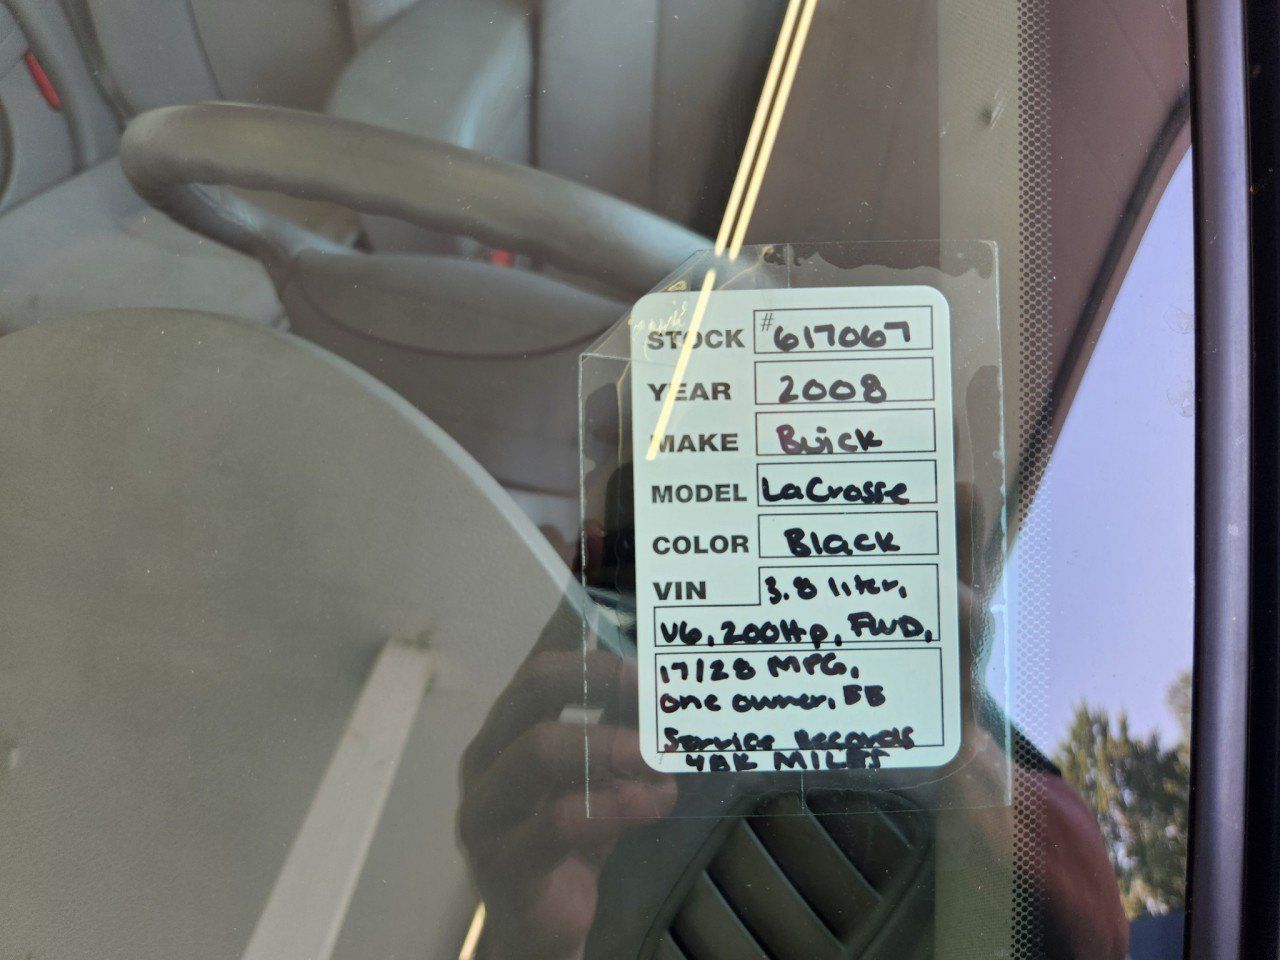 STOCK #617067
YEAR 2008
MAKE Buick
MODEL LaCrosse
COLOR Black
VIN 3.8 liter,
V6, 200Hp, FWD,
17/28 MPG,
one owner, 55
Service Records
48K MILES